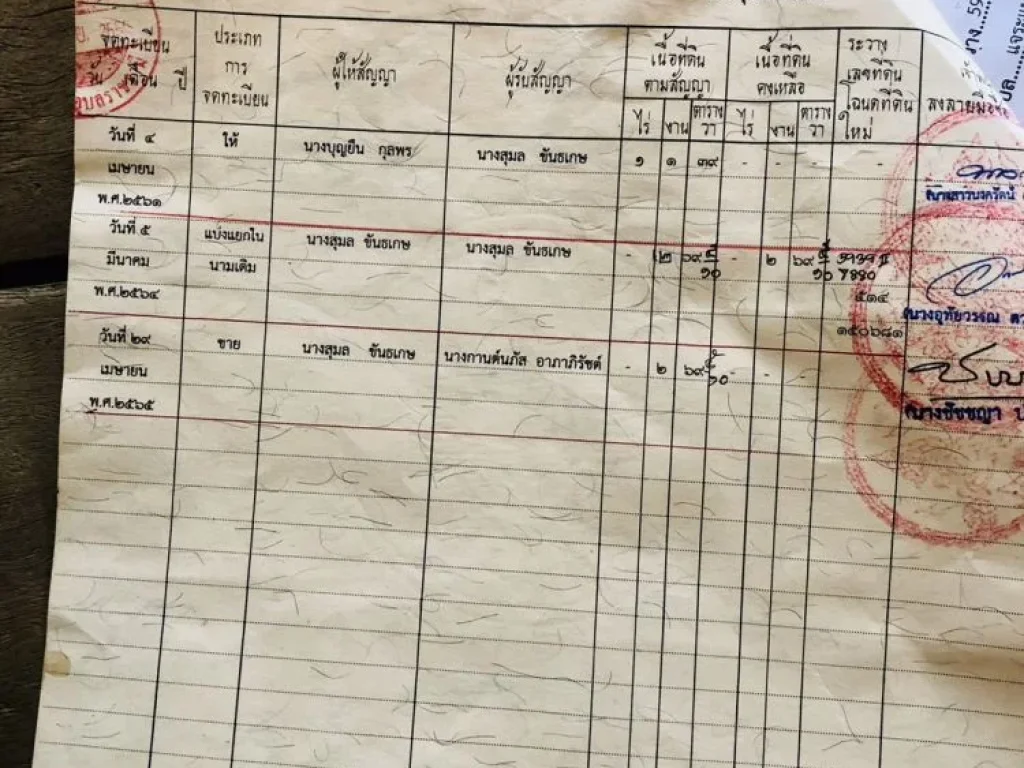 จดทะเบียน
วัน เดือน ปี
ประเภท
การ
จดทะเบียน
ผู้ให้สัญญา
ผู้รับสัญญา
เนื้อที่ดิน
ตามสัญญา
ไร่ งาน ตาราง
วา
เนื้อที่ดิน
คงเหลือ
ไร่ งาน ตาราง
วา
ระวาง
เลขที่ดิน
โฉนดที่ดิน
ใหม่
วันที่ ๔ ให้ นางบุญยืน กุลพร นางสุมล ขันธเกษ ๑ ๑ ๓๙ - - - -
เมษายน
พ.ศ.๒๕๖๑
วันที่ ๕ แบ่งแยกใน นางสุมล ขันธเกษ นางสุมล ขันธเกษ - ๒ ๖๙ - ๒ ๖๙
มีนาคม นามเดิม ๑๐ ๑๐
พ.ศ.๒๕๖๔ ๕๑๔
๑๕๐๖๘๑
(นางอุทัยวรรณ
วันที่ ๒๙ ขาย นางสุมล ขันธเกษ นางกานต์นภัส อาภาภิรัชต์ - ๒ ๖๙ - - -
เมษายน ๑๐
พ.ศ.๒๕๖๕
(นางชิชชญา